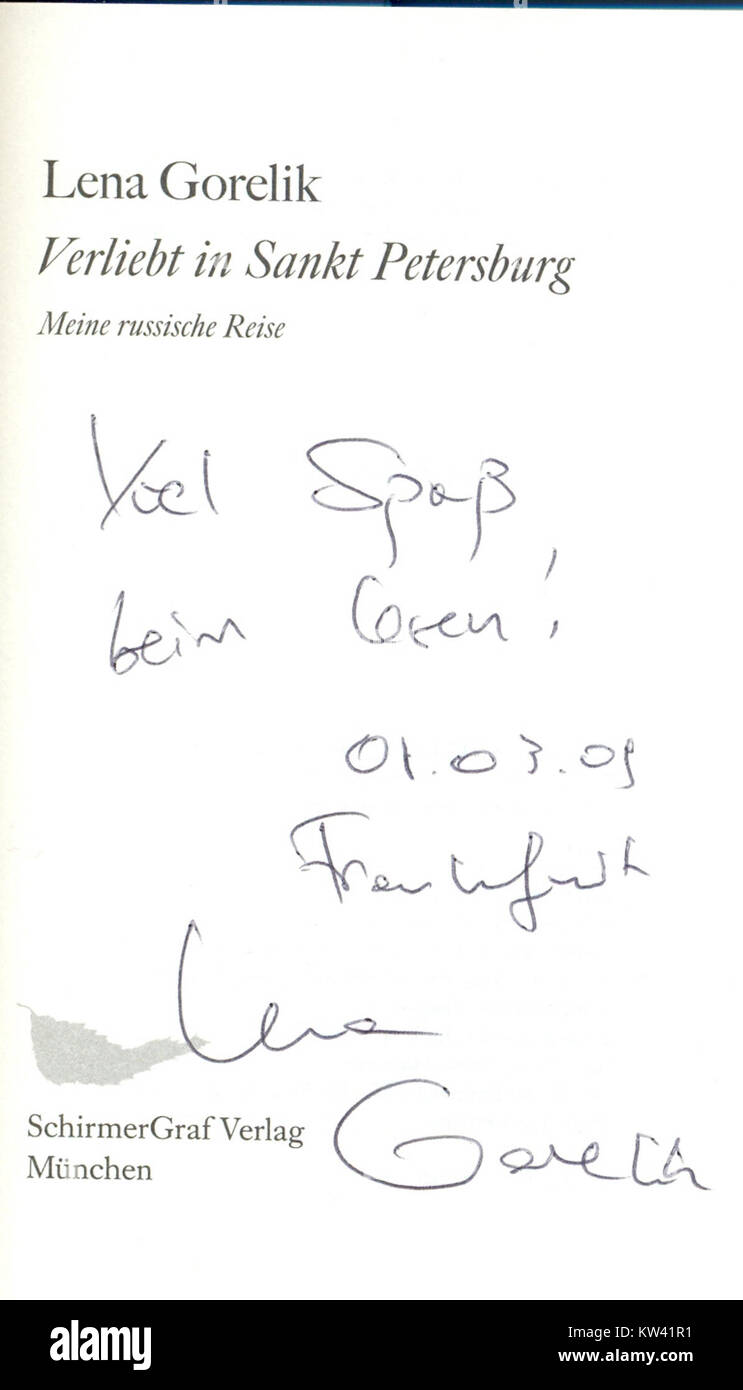 Lena Gorelik
Verliebt in Sankt Petersburg
Meine russische Reise
Viel Spaß
beim Lesen!
01.03.09
Frankfurt
Lena
Gorelik
SchirmerGraf Verlag
München
alamy
Image ID: KW41R1
www.alamy.com